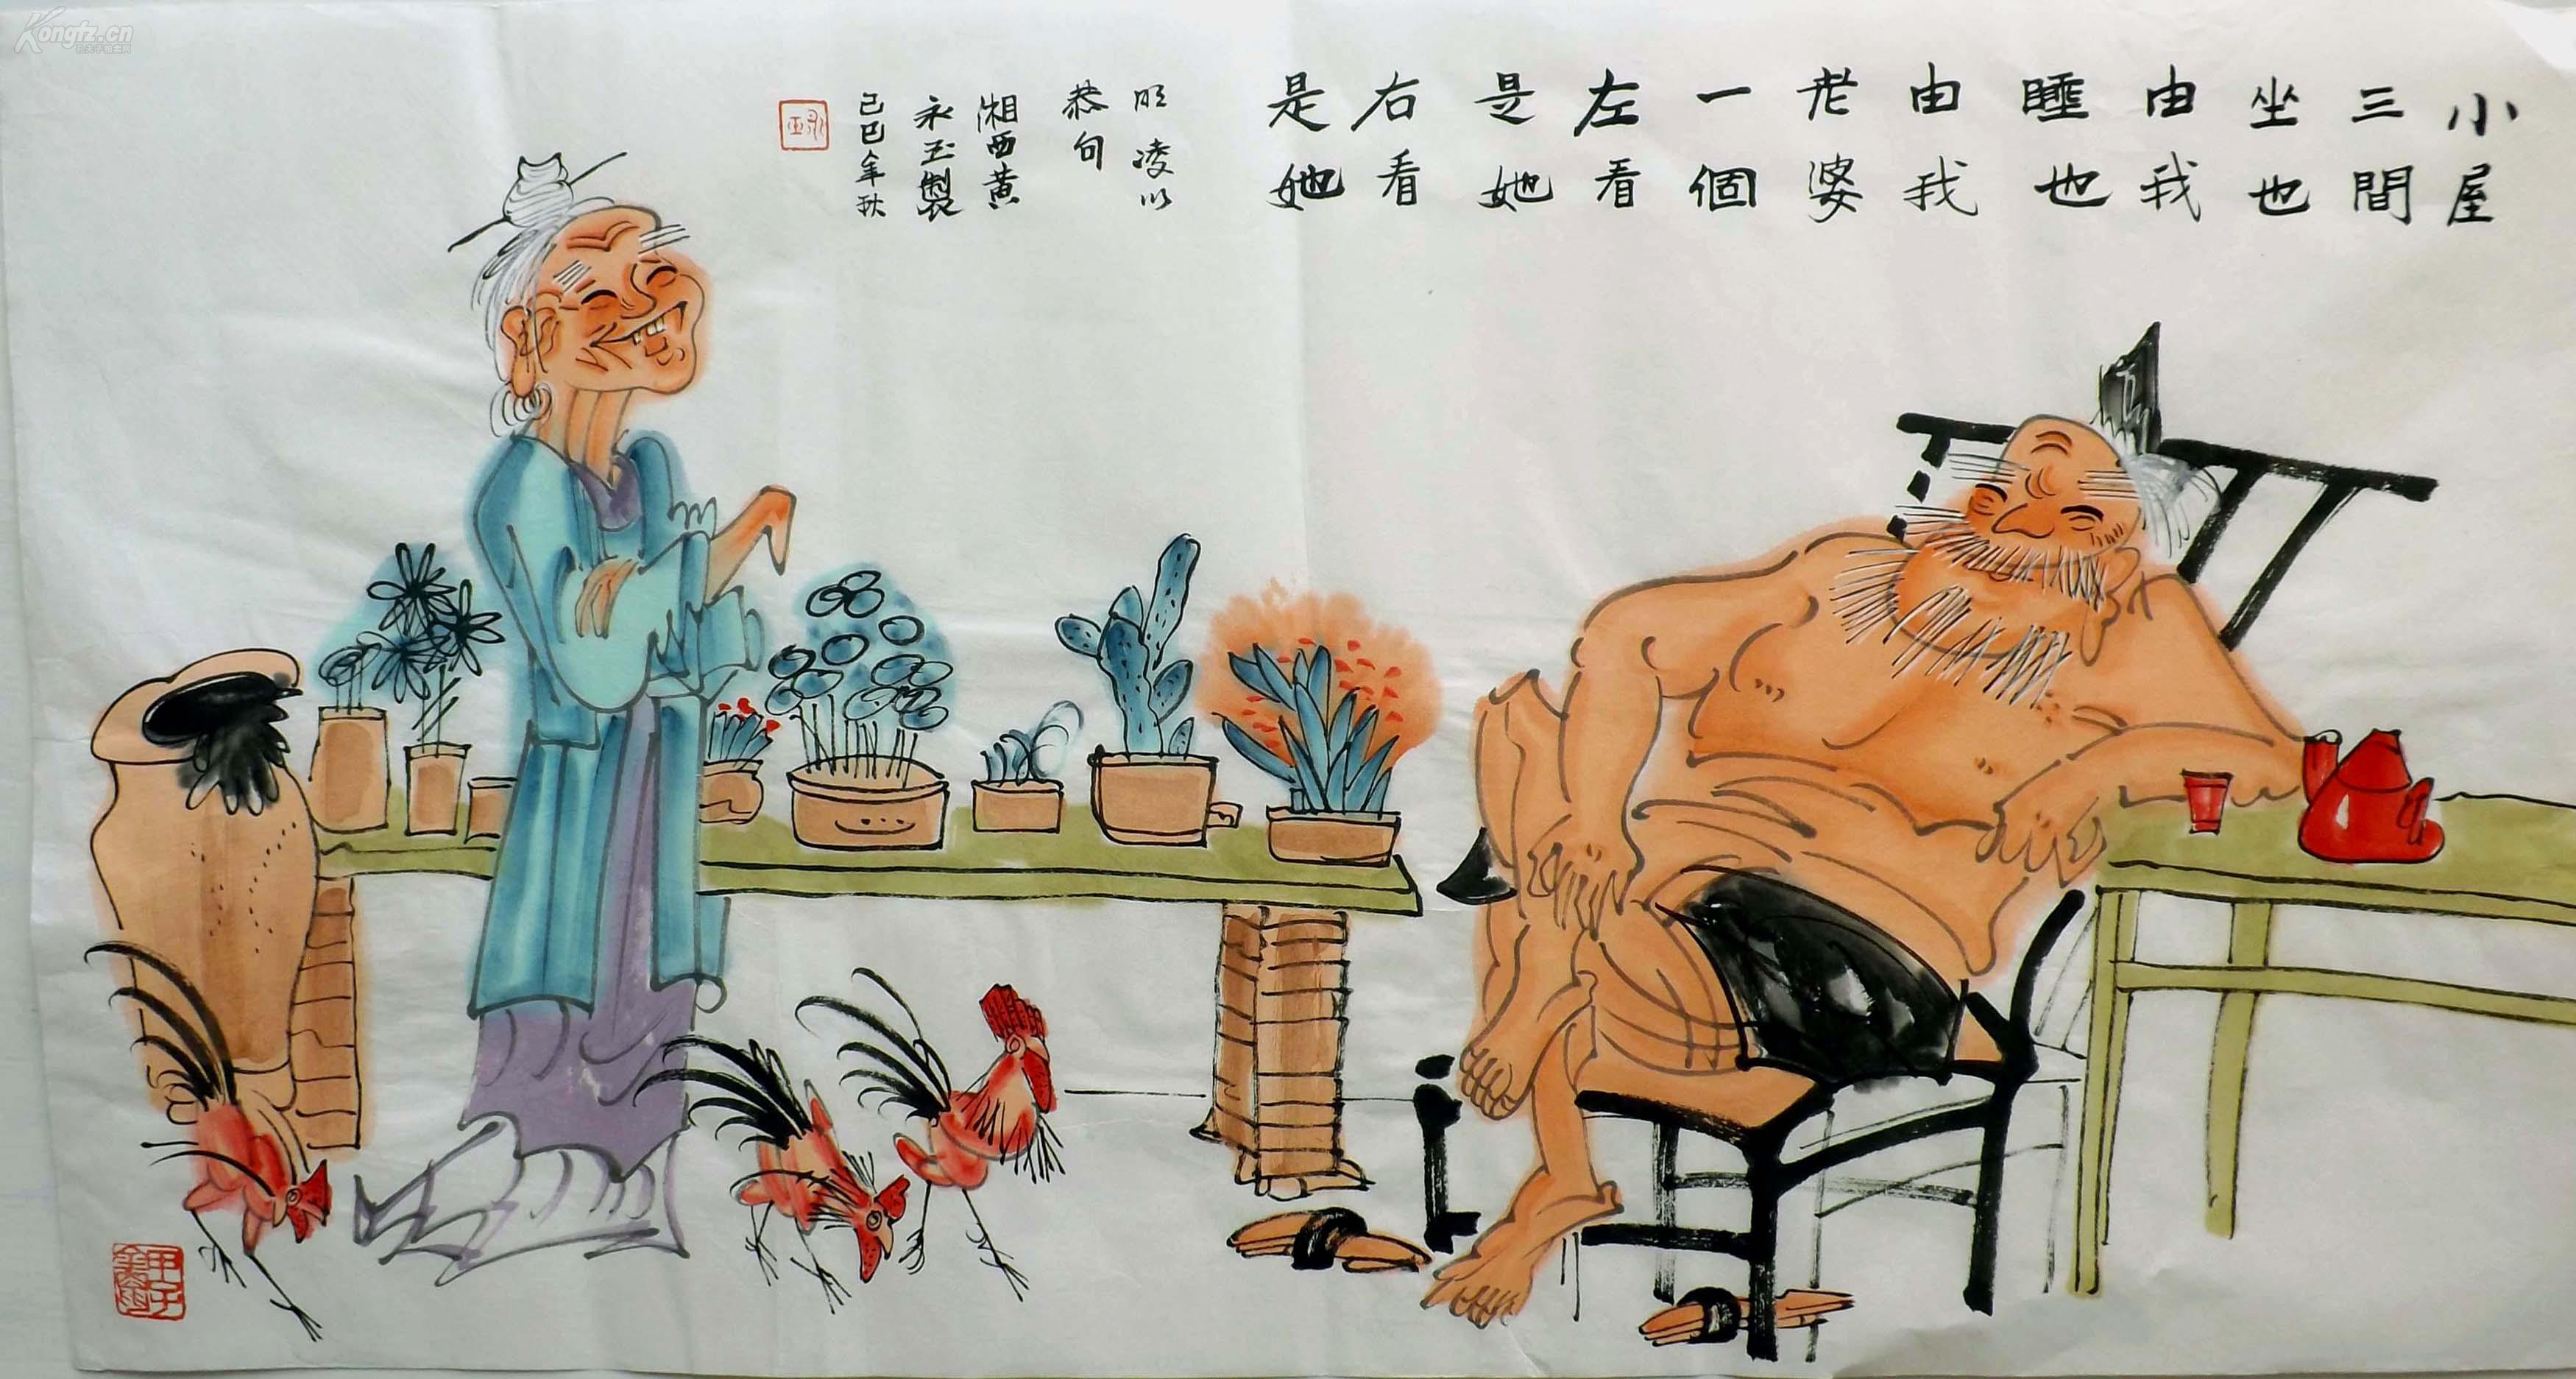 小屋
三間
坐也
由我
睡也
由我
老婆
一個
左看
是她
右看
是她
明凌以
恭句
湘西黄
永玉製
己巳年秋
永玉
Kongfz.cn